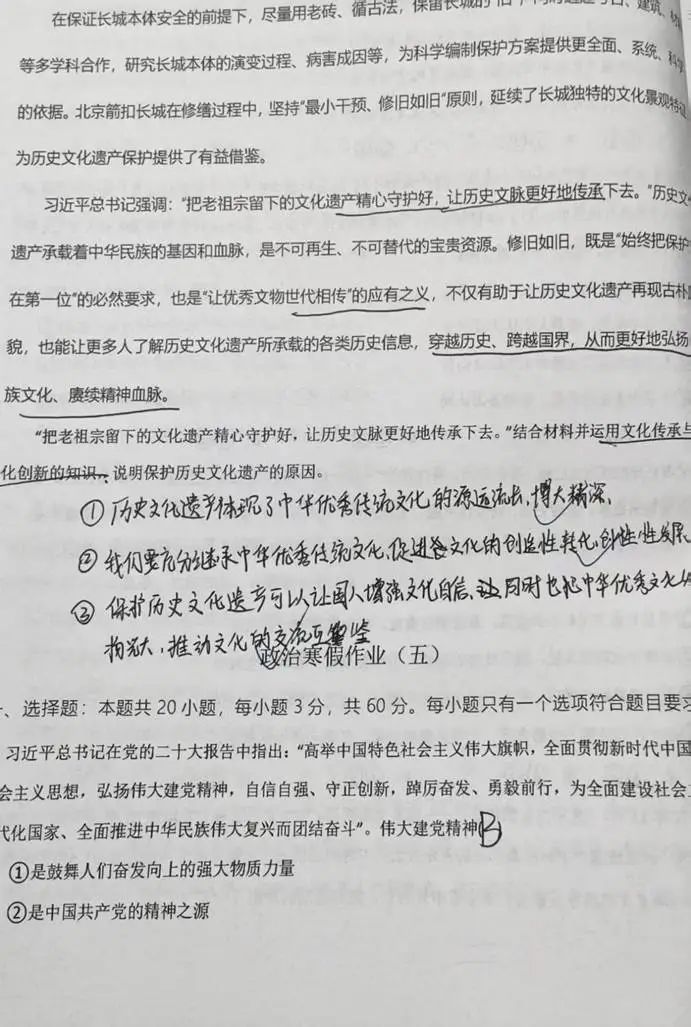 在保证长城本体安全的前提下，尽量用老砖、循古法，保留长城的"旧"
等多学科合作，研究长城本体的演变过程、病害成因等，为科学编制保护方案提供更全面、系统、科学
的依据。北京箭扣长城在修缮过程中，坚持"最小干预、修旧如旧"原则，延续了长城独特的文化景观特征
为历史文化遗产保护提供了有益借鉴。
习近平总书记强调："把老祖宗留下的文化遗产精心守护好，让历史文脉更好地传承下去。"历史文
遗产承载着中华民族的基因和血脉，是不可再生、不可替代的宝贵资源。修旧如旧，既是"始终把保护
在第一位"的必然要求，也是"让优秀文物世代相传"的应有之义，不仅有助于让历史文化遗产再现古朴
貌，也能让更多人了解历史文化遗产所承载的各类历史信息，穿越历史、跨越国界，从而更好地弘扬
族文化、赓续精神血脉。
"把老祖宗留下的文化遗产精心守护好，让历史文脉更好地传承下去。"结合材料并运用文化传承与
化创新的知识，说明保护历史文化遗产的原因。
①历史文化遗产体现了中华优秀传统文化的源远流长、博大精深、
②我们要充分继承中华优秀传统文化,促进各文化的创造性转化,创性性发展
③保护历史文化遗产可以让国人增强文化自信、同时也把中华优秀文化
推动文化的交流互鉴
政治寒假作业（五）
一、选择题：本题共 20 小题，每小题 3 分，共 60 分。每小题只有一个选项符合题目要求
习近平总书记在党的二十大报告中指出："高举中国特色社会主义伟大旗帜，全面贯彻新时代中国
会主义思想，弘扬伟大建党精神，自信自强、守正创新，踔厉奋发、勇毅前行，为全面建设社会主
代化国家、全面推进中华民族伟大复兴而团结奋斗"。伟大建党精神B
①是鼓舞人们奋发向上的强大物质力量
②是中国共产党的精神之源